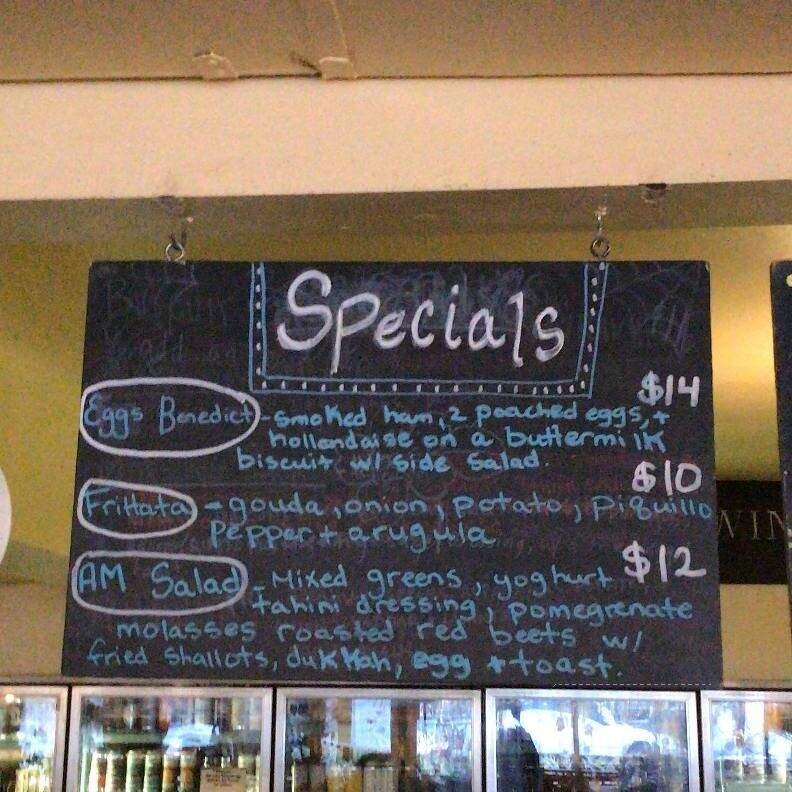 Specials
$14
Eggs Benedict - smoked ham, 2 poached eggs, +
hollandaise on a buttermilk
biscuit w/ side salad.
$10
Frittata - gouda, onion, potato, piquillo
pepper + arugula
$12
AM Salad - Mixed greens, yoghurt
tahini dressing, pomegrenate
molasses roasted red beets w/
fried shallots, dukkah, egg + toast.
WIN